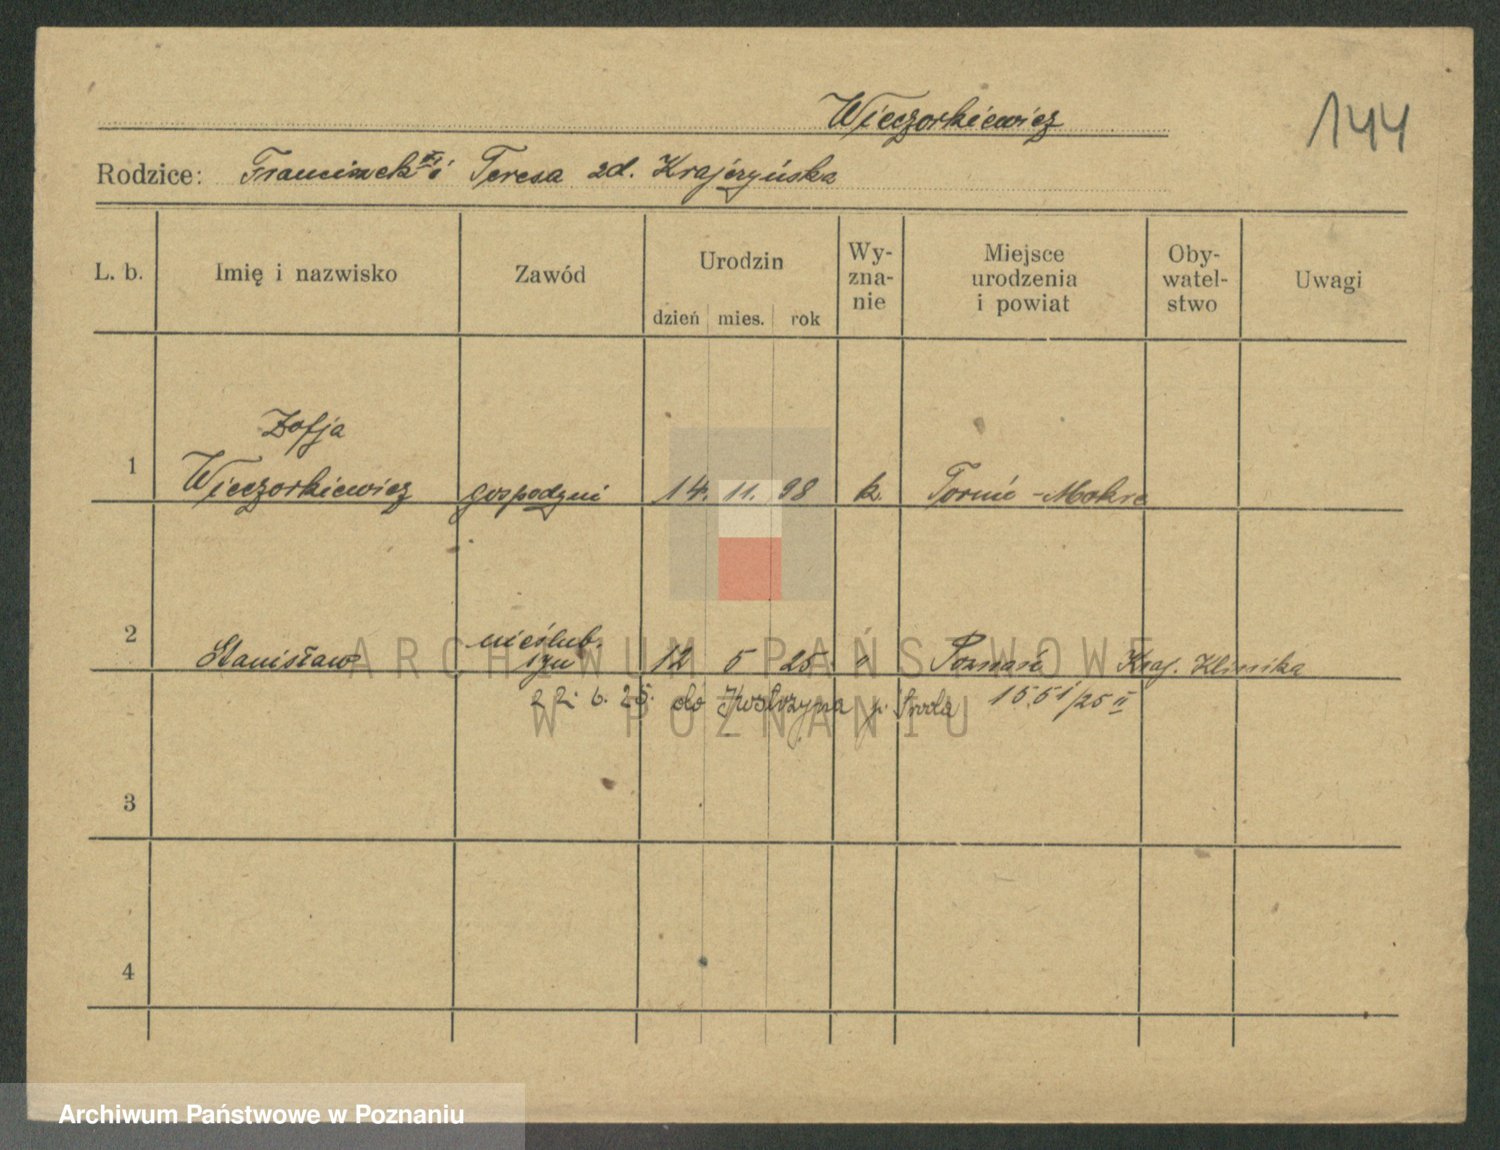 Wieczorkiewicz
144
Rodzice: Franciszek i Teresa zd. Krajczyńska
L. b. Imię i nazwisko Zawód Urodzin dzień mies. rok Wy-zna-nie Miejsce urodzenia i powiat Oby-watel-stwo Uwagi
Zofja
1 Wieczorkiewicz gospodyni 14. 11. 98 k. Toruń-Mokre
nieślub.
2 Stanisław syn 12 5 25. " Poznań Kraj. Klinika
ARCHIWUM PAŃSTWOWE
22. 6. 25. do Kostrzyna p. Środa 15.51/25 II
W POZNANIU
3
4
Archiwum Państwowe w Poznaniu